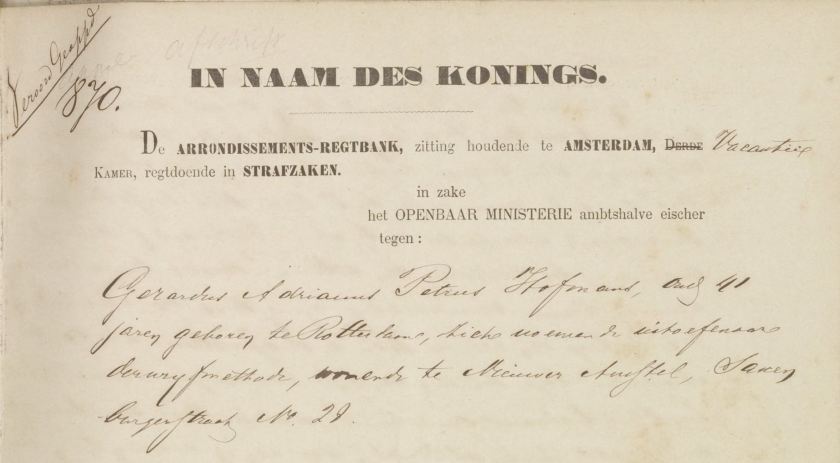 afschrift
870.
IN NAAM DES KONINGS.
De ARRONDISSEMENTS-REGTBANK, zitting houdende te AMSTERDAM, Derde Vacantie
Kamer, regtdoende in STRAFZAKEN.
in zake
het OPENBAAR MINISTERIE ambtshalve eischer
tegen:
Gerardus Adrianus Petrus Hofmans, oud 41
jaren geboren te Rotterdam, zich noemende uitoefenaar
der wryfmethode, wonende te Nieuwer Amstel, Saxen
burgerstraat No. 28.